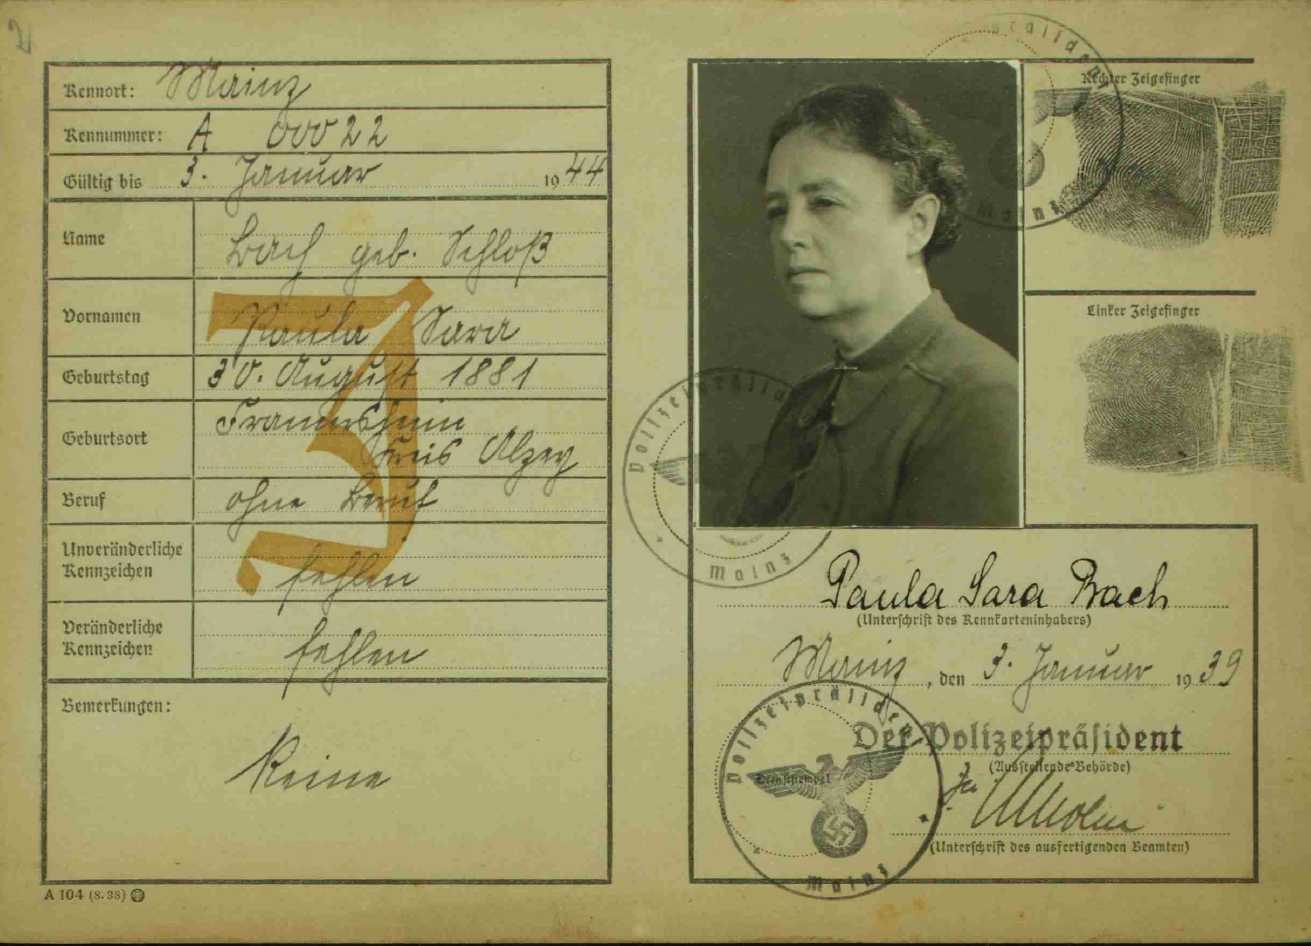 2
Kennort: Mainz
Kennummer: A 00022
Gültig bis 3. Januar 1944
Name Bach geb. Schloß
Vornamen Paula Sara
Geburtstag 30. August 1881
Geburtsort Framersheim
Kreis Alzey
Beruf ohne Beruf
Unveränderliche
Kennzeichen fehlen
Veränderliche
Kennzeichen fehlen
Bemerkungen:
Keine
J
A 104 (8.38)
Rechter Zeigefinger
Mainz
Linker Zeigefinger
Polizeipräsident
Mainz
Paula Sara Bach
(Unterschrift des Kennkarteninhabers)
Mainz, den 3. Januar 1939
Polizeipräsident
Mainz
Dienststempel
Der Polizeipräsident
(Ausstellende Behörde)
(Unterschrift des ausfertigenden Beamten)